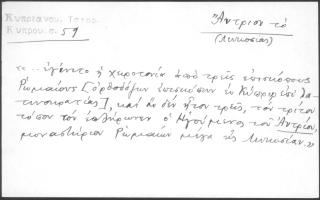 Κυπριανου, Ιστορ.
Κυπρου σ. 59
Ἄντριον τό
(Λευκωσίας)
«... ἐγένετο ἡ χειροτονία ἀπό τρεῖς ἐπισκόπους
Ρωμαίους [ὀρθοδόξων ἐπισκόπων ἐν Κύπρῳ ἐπί Λα-
τινοκρατίας], καί ἄν δέν ἦτον τρεῖς, τόν τρίτον
τόπον τόν ἐπλήρωνεν ὁ Ἡγούμενος τοῦ Ἀντρίου,
μοναστήριον Ρωμαίων μέγα τῆς Λευκωσίας.»